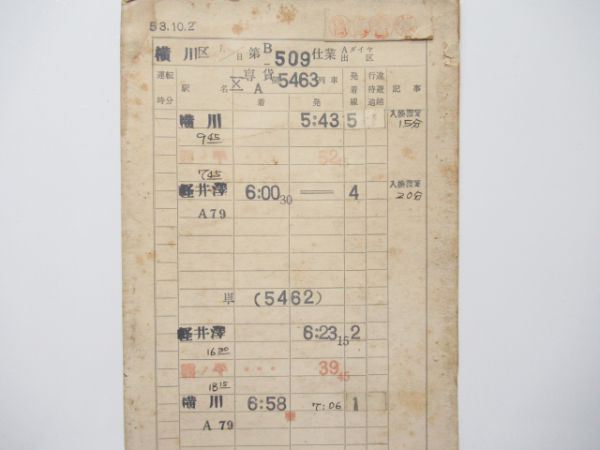 53.10.2
横川区 日 第 B 509 仕業 Aダイヤ 出区
運転時分 駅名 専貨 A 5463 列車 着 発 発着線 行違待避追越 記事
横川 5:43 5 入換設定 15分
9 45
ノ平 52
7 45
軽井澤 6:00 30 4 入換設定 20分
A 79
単 (5462)
軽井澤 6:23 15 2
16 30
ノ平 ・・・ 39 45
18 15
横川 6:58 7:06 1
A 79